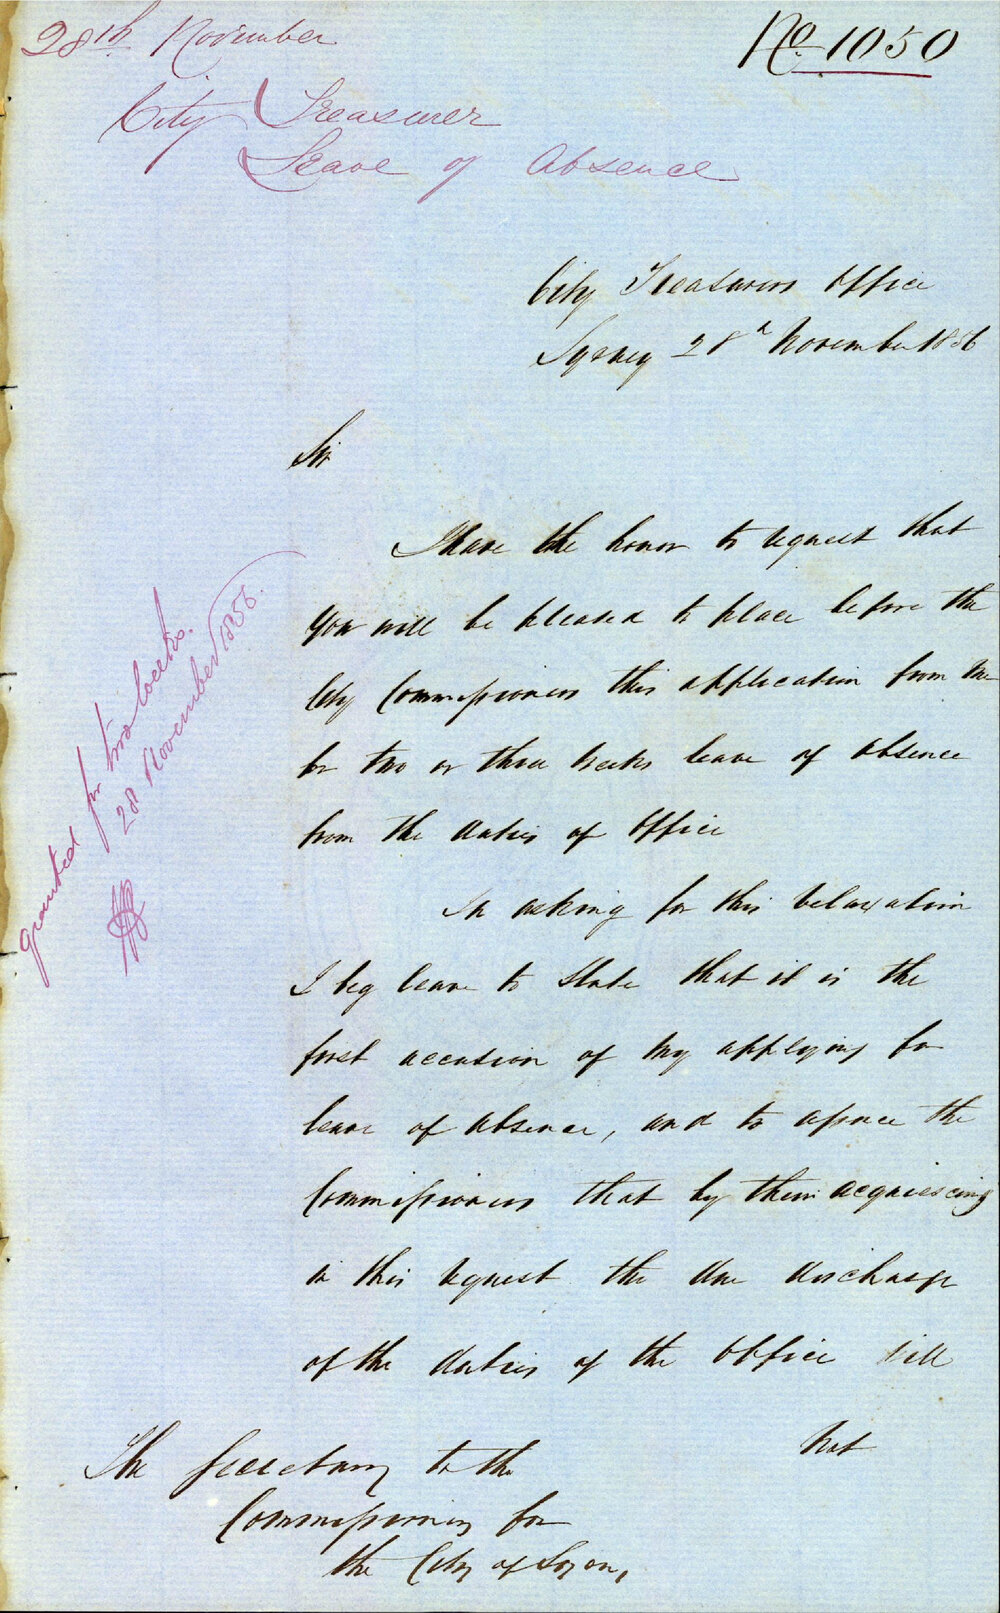 28th November
No. 1050
City Treasurer
Leave of Absence
City Treasurers Office
Sydney 28th November 1856
Sir
I have the honor to request that
you will be pleased to place before the
City Commissioners this application from me
for two or three weeks leave of absence
from the duties of office
In asking for this relaxation
I beg leave to state that it is the
first occasion of my applying for
leave of absence, and to assure the
Commissioners that by them acquiescing
in this request the due discharge
of the duties of the office will
not
The Secretary to the
Commissioners for
the City of Sydney
granted for two weeks.
28 November 1856.